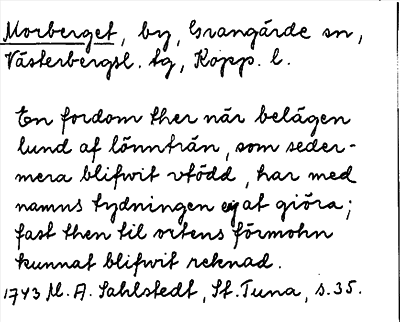 Morberget, by, Grangärde sn,
Västerbergsl. tg, Kopp. l.
En fordom ther när belägen
lund af lönnträn, som seder-
mera blifwit vtödd, har med
namns tydningen ej at giöra;
fast then til ortens förmohn
kunnat blifwit reknad.
1743 M. A. Sahlstedt, St. Tuna, s. 35.